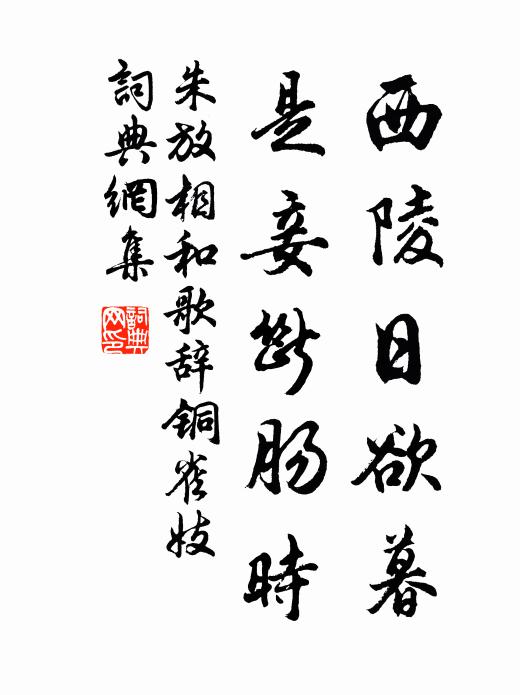 西陵日欲暮
是妾断肠時
朱放相和歌辞铜雀妓
詞典網集
詞典
网印